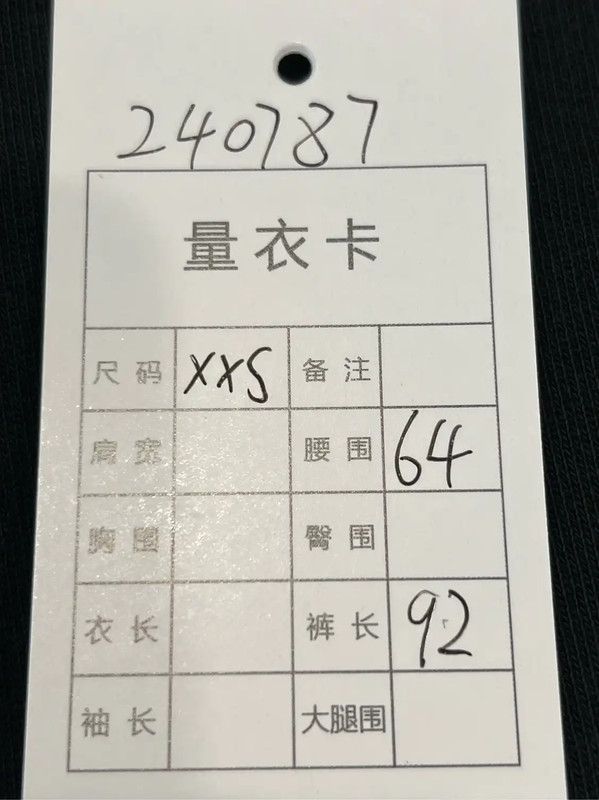 240787
量衣卡
尺码 XXS 备注
肩宽 腰围 64
胸围 臀围
衣长 裤长 92
袖长 大腿围